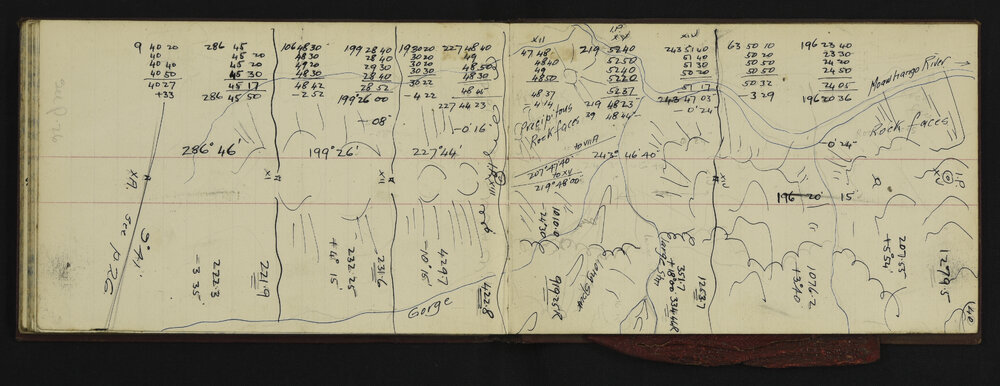 9 40 20
40
40 40
40 50
40 27
+33
286 45
45 20
45 20
45 30
45 17
286 45 50
106 48 30
48 30
49 20
48 30
48 42
-2 52
199 28 40
28 40
29 30
28 40
28 52
199 26 00
-08
193 0 20
30 20
30 30
30 22
-4 22
227 48 40
49
48 50
48 30
48 45
227 44 23
-0'16
286° 46'
199° 26'
227° 44'
XA
XI
XII
XIII
9° 41'
see p. 26
222.3
-3° 35'
221.9
232.25
+4° 15'
231.6
429.7
-10° 15'
422.8
Gorge
XII
47 48
48 40
49
48 50
48 37
= 4 14
I.P.
XV
219 52 40
52 50
52 40
52 20
52 37
219 48 23
29 48 44
XIV
243 51 40
51 40
51 30
50 20
51 17
243 47 03
-0'24
63 50 10
50 20
50 50
50 50
50 32
-3 29
196 23 40
23 30
24 20
24 50
24 05
196 20 36
-0'24"
Moonhango River
Precipitous
Rock faces
Rock faces
to XIIA
207° 47 40"
to XV
219° 48'00
243° 46 40"
196 20 15
XV
I.P.
XV
1010.0
-24° 30'
919.25R
Large Stm
351.7
+18°00 334.4R
1253.7
1076.2
+3° 40
207.55
+5° 54
1279.5
(40